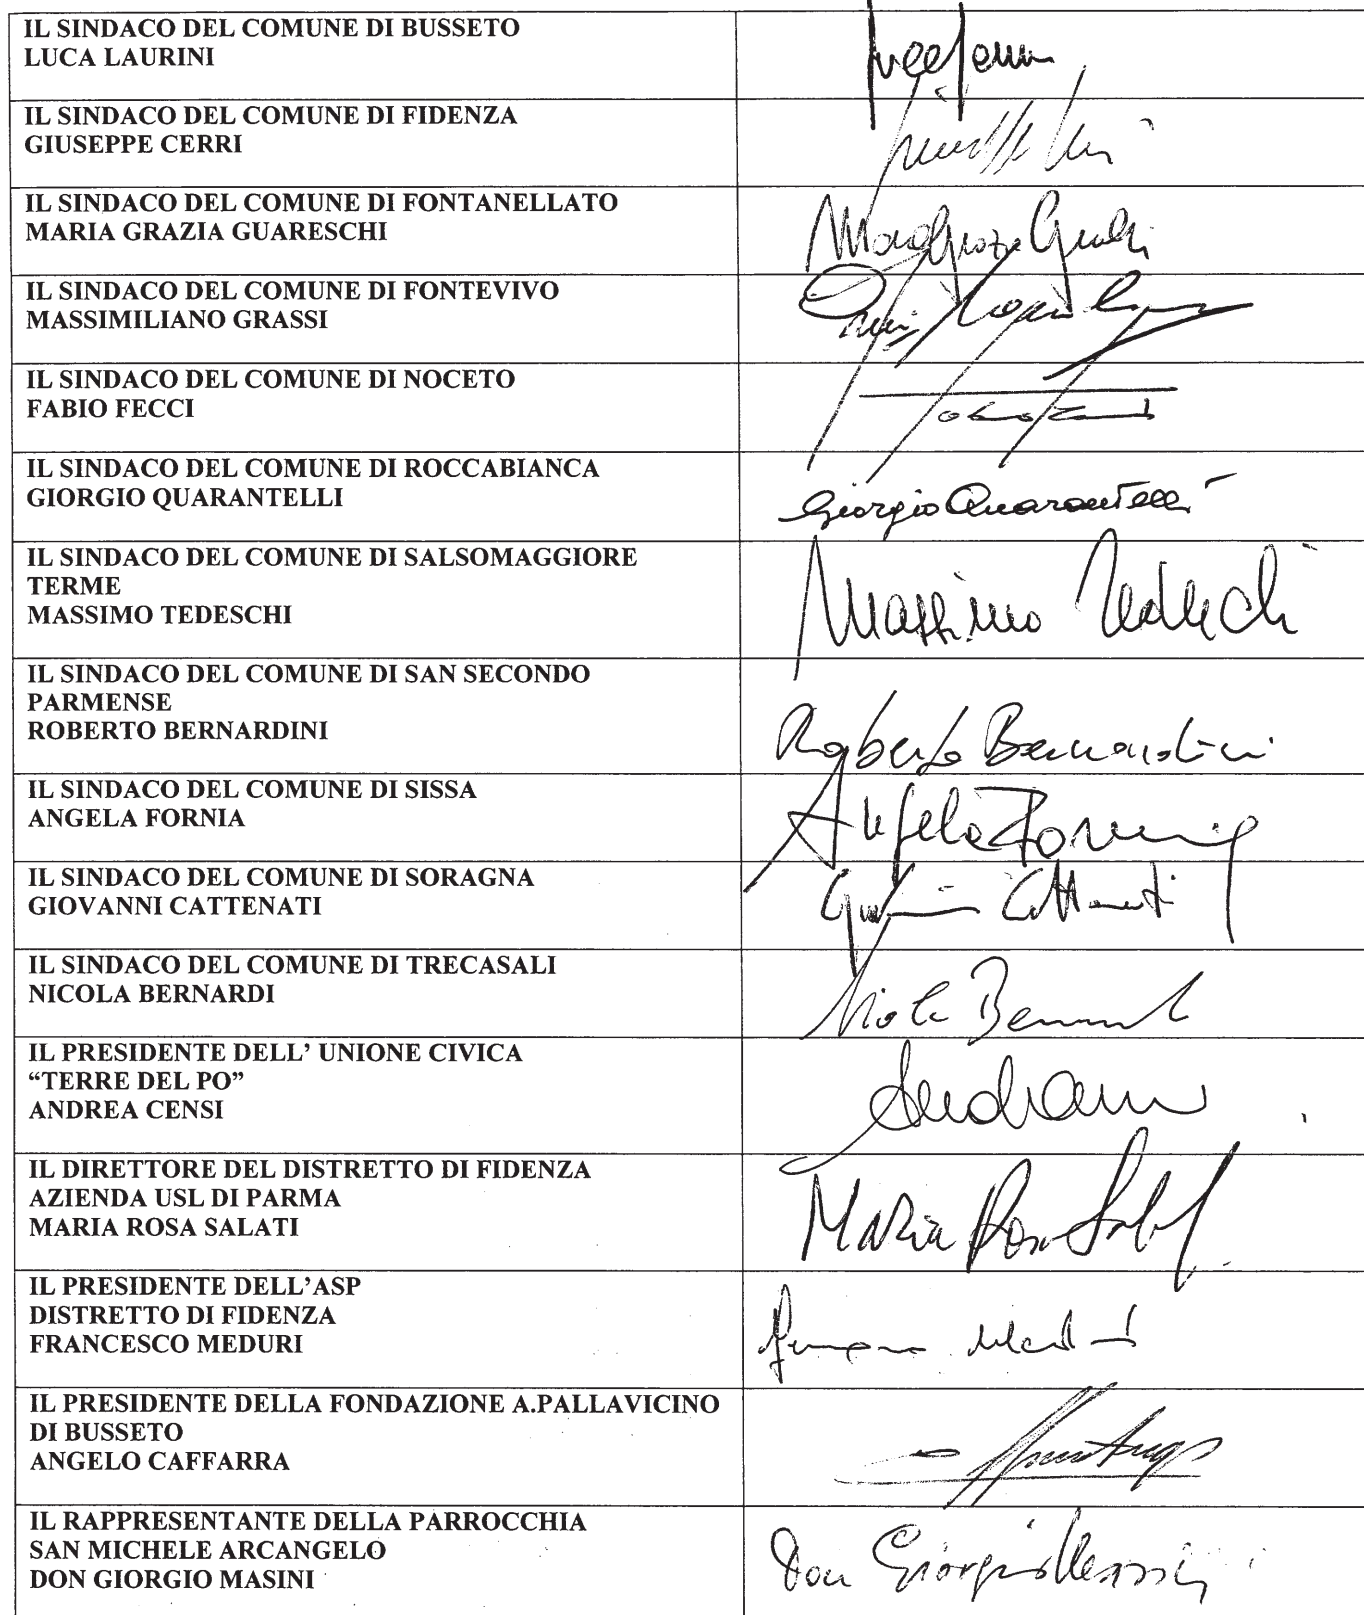 IL SINDACO DEL COMUNE DI BUSSETO
LUCA LAURINI
IL SINDACO DEL COMUNE DI FIDENZA
GIUSEPPE CERRI
IL SINDACO DEL COMUNE DI FONTANELLATO
MARIA GRAZIA GUARESCHI
IL SINDACO DEL COMUNE DI FONTEVIVO
MASSIMILIANO GRASSI
IL SINDACO DEL COMUNE DI NOCETO
FABIO FECCI
IL SINDACO DEL COMUNE DI ROCCABIANCA
GIORGIO QUARANTELLI
Giorgio Quarantelli
IL SINDACO DEL COMUNE DI SALSOMAGGIORE
TERME
MASSIMO TEDESCHI
Massimo Tedeschi
IL SINDACO DEL COMUNE DI SAN SECONDO
PARMENSE
ROBERTO BERNARDINI
Roberto Bernardini
IL SINDACO DEL COMUNE DI SISSA
ANGELA FORNIA
Angela Fornia
IL SINDACO DEL COMUNE DI SORAGNA
GIOVANNI CATTENATI
IL SINDACO DEL COMUNE DI TRECASALI
NICOLA BERNARDI
IL PRESIDENTE DELL' UNIONE CIVICA
“TERRE DEL PO”
ANDREA CENSI
IL DIRETTORE DEL DISTRETTO DI FIDENZA
AZIENDA USL DI PARMA
MARIA ROSA SALATI
Maria Rosa
IL PRESIDENTE DELL'ASP
DISTRETTO DI FIDENZA
FRANCESCO MEDURI
IL PRESIDENTE DELLA FONDAZIONE A.PALLAVICINO
DI BUSSETO
ANGELO CAFFARRA
IL RAPPRESENTANTE DELLA PARROCCHIA
SAN MICHELE ARCANGELO
DON GIORGIO MASINI
Don Giorgio Masini